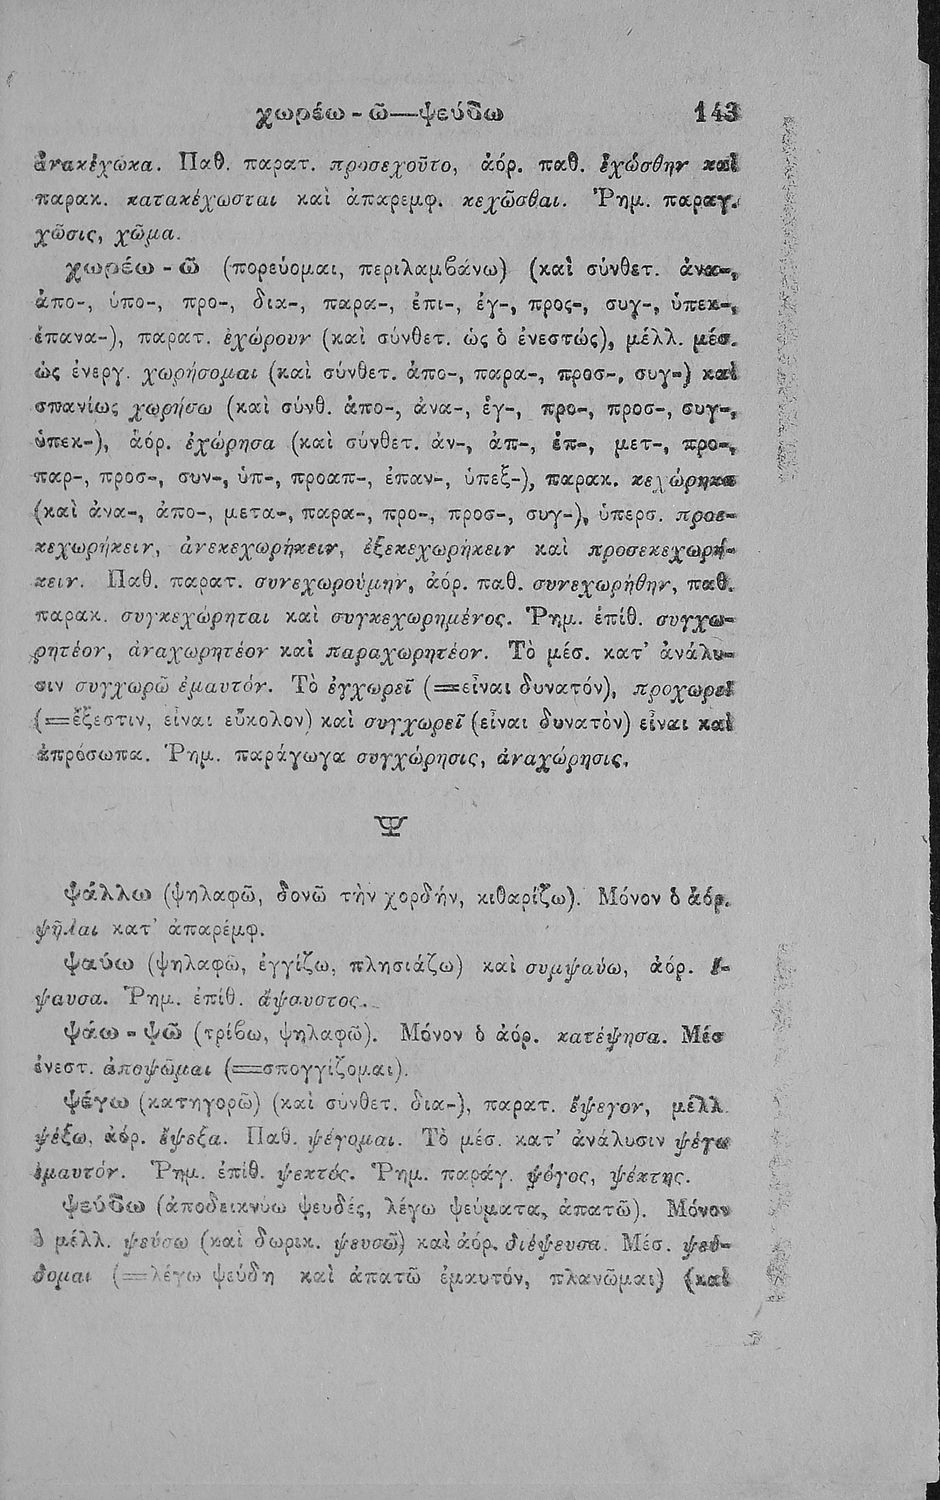 χωρέω - ῶ—ψεύδω 143
ἀνακέχωκα. Παθ. παρατ. προσεχοῦτο, ἀόρ. παθ. ἐχώσθην καὶ
παρακ. κατακέχωσται καὶ ἀπαρεμφ. κεχῶσθαι. Ῥημ. παραγ.
χῶσις, χῶμα.
χωρέω - ῶ (πορεύομαι, περιλαμβάνω) (καὶ σύνθετ. ἀνα-,
ἀπο-, ὑπο-, προ-, δια-, παρα-, ἐπι-, ἐγ-, προς-, συγ-, ὑπεκ-,
ἐπανα-), παρατ. ἐχώρουν (καὶ σύνθετ. ὡς ὁ ἐνεστώς), μέλλ. μέσ.
ὡς ἐνεργ. χωρήσομαι (καὶ σύνθετ. ἀπο-, παρα-, προσ-, συγ-) καὶ
σπανίως χωρήσω (καὶ σύνθ. ἀπο-, ἀνα-, ἐγ-, προ-, προσ-, συγ-,
ὑπεκ-), ἀόρ. ἐχώρησα (καὶ σύνθετ. ἀν-, ἀπ-, ἐπ-, μετ-, προ-,
παρ-, προσ-, συν-, ὑπ-, προαπ-, ἐπαν-, ὑπεξ-), παρακ. κεχώρηκα
(καὶ ἀνα-, ἀπο-, μετα-, παρα-, προ-, προσ-, συγ-), ὑπερσ. προε-
κεχωρήκειν, ἀνεκεχωρήκειν, ἐξεκεχωρήκειν καὶ προσεκεχωρή-
κειν. Παθ. παρατ. συνεχωρούμην, ἀόρ. παθ. συνεχωρήθην, παθ.
παρακ. συγκεχώρηται καὶ συγκεχωρημένος. Ῥημ. ἐπίθ. συγχω-
ρητέον, ἀναχωρητέον καὶ παραχωρητέον. Τὸ μέσ. κατ' ἀνάλυ-
σιν συγχωρῶ ἐμαυτόν. Τὸ ἐγχωρεῖ (=εἶναι δυνατόν), προχωρεῖ
(=ἔξεστιν, εἶναι εὔκολον) καὶ συγχωρεῖ (εἶναι δυνατὸν) εἶναι καὶ
ἀπρόσωπα. Ῥημ. παράγωγα συγχώρησις, ἀναχώρησις.
Ψ
ψάλλω (ψηλαφῶ, δονῶ τὴν χορδήν, κιθαρίζω). Μόνον ὁ ἀόρ.
ψῆλαι κατ' ἀπαρέμφ.
ψαύω (ψηλαφῶ, ἐγγίζω, πλησιάζω) καὶ συμψαύω, ἀόρ. ἔ-
ψαυσα. Ῥημ. ἐπίθ. ἄψαυστος.
ψάω - ψῶ (τρίβω, ψηλαφῶ). Μόνον ὁ ἀόρ. κατέψησα. Μέσ
ἐνεστ. ἀποψῶμαι (=σπογγίζομαι).
ψέγω (κατηγορῶ) (καὶ σύνθετ. δια-), παρατ. ἔψεγον, μέλλ.
ψέξω, ἀόρ. ἔψεξα. Παθ. ψέγομαι. Τὸ μέσ. κατ' ἀνάλυσιν ψέγω
ἐμαυτόν. Ῥημ. ἐπίθ. ψεκτός. Ῥημ. παράγ. ψόγος, ψέκτης.
ψεύδω (ἀποδεικνύω ψευδές, λέγω ψεύματα, ἀπατῶ). Μόνον
ὁ μέλλ. ψεύσω (καὶ δωρικ. ψευσῶ) καὶ ἀόρ. διέψευσα. Μέσ. ψεύ-
δομαι (=λέγω ψεύδη καὶ ἀπατῶ ἐμαυτόν, πλανῶμαι) (καὶ